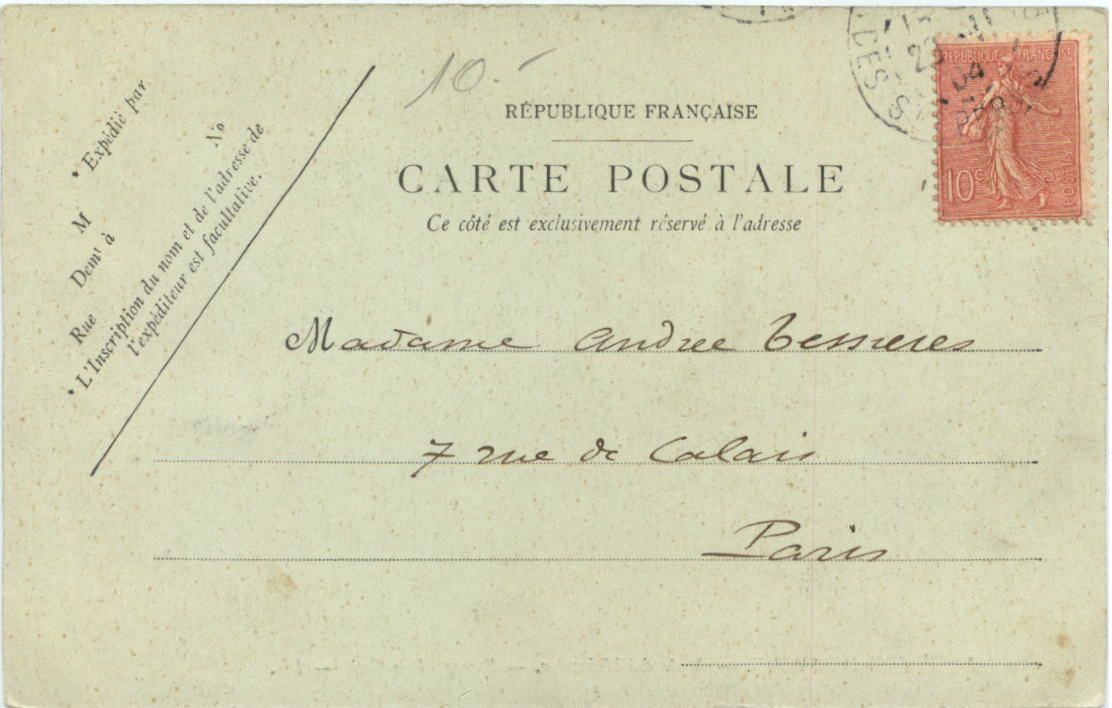 10.-
RÉPUBLIQUE FRANÇAISE
CARTE POSTALE
Ce côté est exclusivement réservé à l'adresse
* Expédié par
M
Demt à
Rue
No
* L'Inscription du nom et de l'adresse de
l'expéditeur est facultative.
REPUBLIQUE FRANÇAISE
10c
POSTES
DES
04
Madame Andree Bessieres
7 rue de Calais
Paris